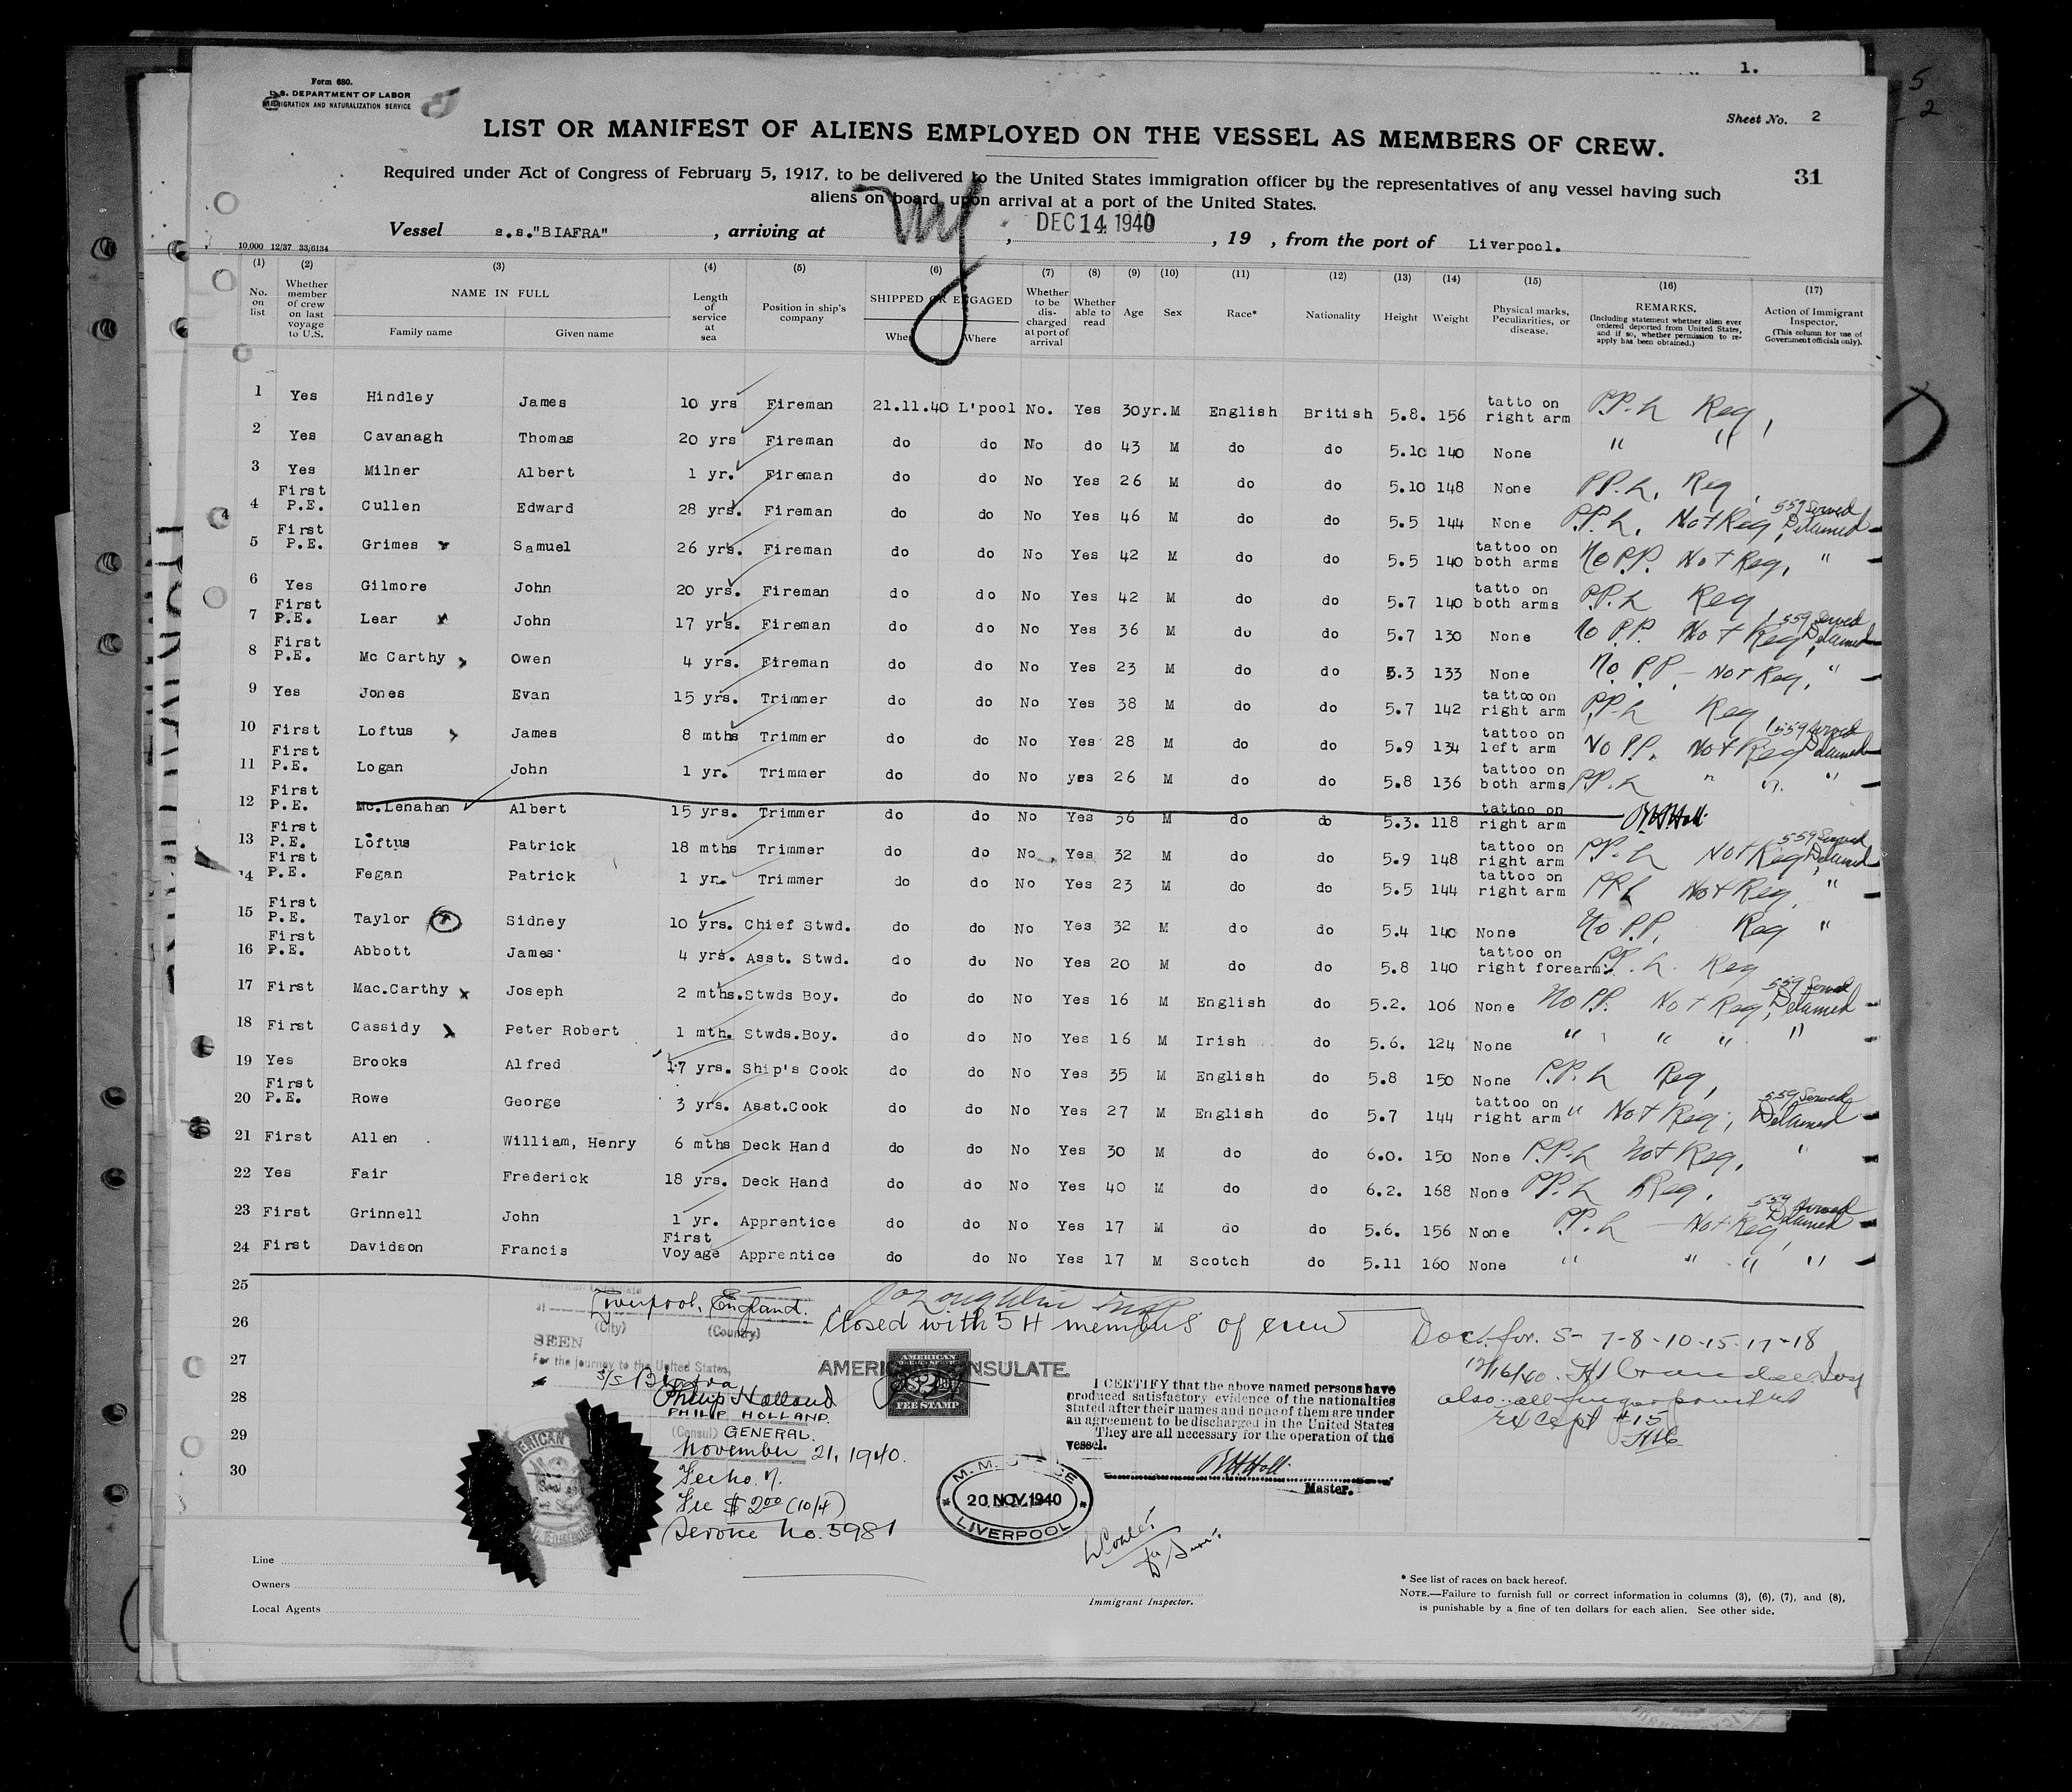 1.
5
2
Form 680.
U. S. DEPARTMENT OF LABOR
IMMIGRATION AND NATURALIZATION SERVICE
Sheet No. 2
LIST OR MANIFEST OF ALIENS EMPLOYED ON THE VESSEL AS MEMBERS OF CREW.
31
Required under Act of Congress of February 5, 1917, to be delivered to the United States immigration officer by the representatives of any vessel having such
aliens on board upon arrival at a port of the United States.
Vessel s.s."BIAFRA" , arriving at NY , DEC 14 1940 , 19 , from the port of Liverpool.
10,000 12/37 33/6134
(1) (2) (3) (4) (5) (6) (7) (8) (9) (10) (11) (12) (13) (14) (15) (16) (17)
No. on list
Whether member of crew on last voyage to U.S.
NAME IN FULL
Family name Given name
Length of service at sea
Position in ship's company
SHIPPED OR ENGAGED
When Where
Whether to be discharged at port of arrival
Whether able to read
Age Sex Race* Nationality Height Weight
Physical marks, Peculiarities, or disease.
REMARKS.
(Including statement whether alien ever ordered deported from United States, and if so, whether permission to reapply has been obtained.)
Action of Immigrant Inspector.
(This column for use of Government officials only).
1 Yes Hindley James 10 yrs Fireman 21.11.40 L'pool No. Yes 30yr. M English British 5.8. 156 tatto on right arm P.P. h Req,
2 Yes Cavanagh Thomas 20 yrs Fireman do do No do 43 M do do 5.10 140 None " "
3 Yes Milner Albert 1 yr. Fireman do do No Yes 26 M do do 5.10 148 None P.P. h, Req,
4 First P.E. Cullen Edward 28 yrs. Fireman do do No Yes 46 M do do 5.5 144 None P.P. h, Not Req, 559 Served Detained
5 First P.E. Grimes x Samuel 26 yrs. Fireman do do No Yes 42 M do do 5.5 140 tattoo on both arms No P.P. Not Req, "
6 Yes Gilmore John 20 yrs. Fireman do do No Yes 42 M do do 5.7 140 tatto on both arms P.P. h Req
7 First P.E. Lear x John 17 yrs. Fireman do do No Yes 36 M do do 5.7 130 None No P.P. Not Req, 559 Served Detained
8 First P.E. Mc Carthy x Owen 4 yrs. Fireman do do No Yes 23 M do do 5.3 133 None No P.P. - Not Req, "
9 Yes Jones Evan 15 yrs. Trimmer do do No Yes 38 M do do 5.7 142 tattoo on right arm P.P. h Req
10 First Loftus x James 8 mths Trimmer do do No Yes 28 M do do 5.9 134 tattoo on left arm No P.P. Not Req 559 Served Detained
11 First P.E. Logan John 1 yr. Trimmer do do No yes 26 M do do 5.8 136 tattoo on both arms P.P. h " " "
12 First P.E. Mc.Lenahan Albert 15 yrs. Trimmer do do No Yes 36 M do do 5.3. 118 tattoo on right arm
13 First P.E. Loftus Patrick 18 mths Trimmer do do No. Yes 32 M do do 5.9 148 tattoo on right arm P.P. h Not Req, 559 Served Detained
14 First P.E. Fegan Patrick 1 yr. Trimmer do do No Yes 23 M do do 5.5 144 tattoo on right arm P.P. h Not Req, "
15 First P.E. Taylor Sidney 10 yrs. Chief Stwd. do do No Yes 32 M do do 5.4 140 None No P.P. Req "
16 First P.E. Abbott James 4 yrs. Asst. Stwd. do do No Yes 20 M do do 5.8 140 tattoo on right forearm. P.P. h. Req
17 First Mac.Carthy x Joseph 2 mths. Stwds Boy. do do No Yes 16 M English do 5.2. 106 None No P.P. Not Req, 559 Served Detained
18 First Cassidy x Peter Robert 1 mth. Stwds.Boy. do do No Yes 16 M Irish do 5.6. 124 None " " " "
19 Yes Brooks Alfred 17 yrs. Ship's Cook do do No Yes 35 M English do 5.8 150 None P.P. h Req,
20 First P.E. Rowe George 3 yrs. Asst.Cook do do No Yes 27 M English do 5.7 144 tattoo on right arm " Not Req; 559 Served Detained
21 First Allen William, Henry 6 mths Deck Hand do do No Yes 30 M do do 6.0. 150 None P.P. h Not Req. "
22 Yes Fair Frederick 18 yrs. Deck Hand do do No Yes 40 M do do 6.2. 168 None P.P. h Req.
23 First Grinnell John 1 yr. Apprentice do do No Yes 17 M do do 5.6. 156 None P.P. h - Not Req 559 Served Detained
24 First Davidson Francis First Voyage Apprentice do do No Yes 17 M Scotch do 5.11 160 None " " " "
25
26
27
28
29
30
American Consulate
at Liverpool, England.
(City) (Country)
SEEN
For the journey to the United States,
S/S Biafra
Philip Holland
PHILIP HOLLAND.
(Consul) GENERAL.
November 21, 1940.
Fee $ 2.00 (10/4)
Service No. 5981
J O Loughlin Insp
Closed with 54 members of crew
AMERICAN CONSULATE.
AMERICAN
FEE STAMP
I CERTIFY that the above named persons have
produced satisfactory evidence of the nationalities
stated after their names and none of them are under
an agreement to be discharged in the United States
They are all necessary for the operation of the
vessel.
Master.
M. M. OFFICE
20 NOV. 1940
LIVERPOOL
Doc. for. 5- 7-8-10-15-17-18
12/16/40.
also all fingerprinted
except #15
Line
Owners
Local Agents
Immigrant Inspector.
* See list of races on back hereof.
NOTE.—Failure to furnish full or correct information in columns (3), (6), (7), and (8),
is punishable by a fine of ten dollars for each alien. See other side.